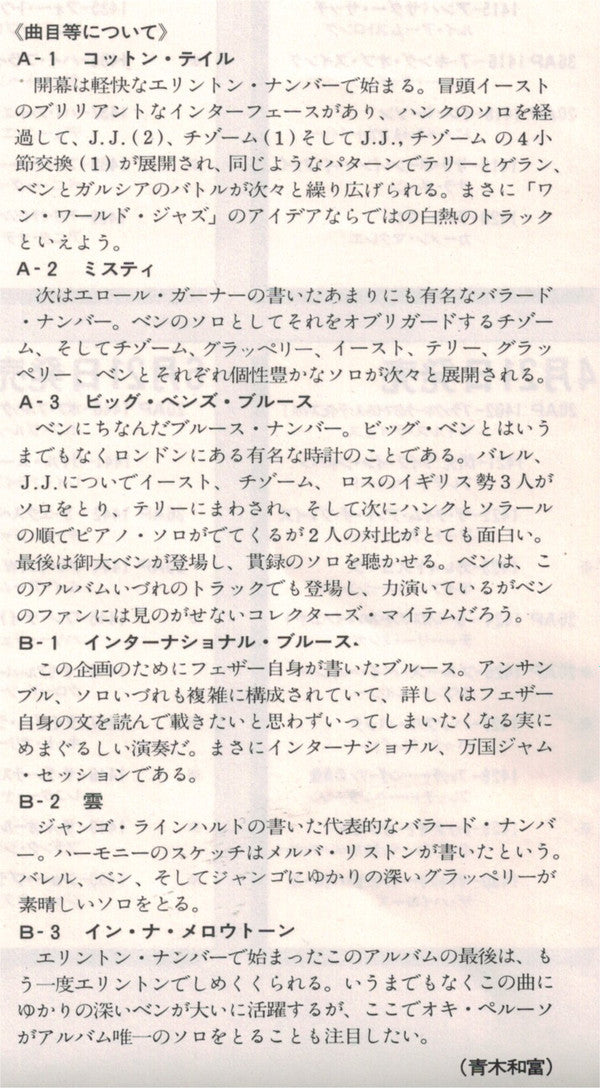 《曲目等について》
A-1 コットン・テイル
開幕は軽快なエリントン・ナンバーで始まる。冒頭イースト
のブリリアントなインターフェースがあり、ハンクのソロを経
過して、J.J.(2)、チゾーム(1)そしてJ.J.,チゾームの4小
節交換(1)が展開され、同じようなパターンでテリーとゲラン、
ベンとガルシアのバトルが次々と繰り広げられる。まさに「ワ
ン・ワールド・ジャズ」のアイデアならではの白熱のトラック
といえよう。
A-2 ミスティ
次はエロール・ガーナーの書いたあまりにも有名なバラード
・ナンバー。ベンのソロとしてそれをオブリガードするチゾー
ム、そしてチゾーム、グラッペリー、イースト、テリー、グラッ
ペリー、ベンとそれぞれ個性豊かなソロが次々と展開される。
A-3 ビッグ・ベンズ・ブルース
ベンにちなんだブルース・ナンバー。ビッグ・ベンとはいう
までもなくロンドンにある有名な時計のことである。バレル、
J.J.についでイースト、チゾーム、ロスのイギリス勢3人が
ソロをとり、テリーにまわされ、そして次にハンクとソラール
の順でピアノ・ソロがでてくるが2人の対比がとても面白い。
最後は御大ベンが登場し、貫録のソロを聴かせる。ベンは、こ
のアルバムいづれのトラックでも登場し、力演いているがベン
のファンには見のがせないコレクターズ・マイテムだろう。
B-1 インターナショナル・ブルース.
この企画のためにフェザー自身が書いたブルース。アンサン
ブル、ソロいづれも複雑に構成されていて、詳しくはフェザー
自身の文を読んで載きたいと思わずいってしまいたくなる実に
めまぐるしい演奏だ。まさにインターナショナル、万国ジャム
・セッションである。
B-2 雲
ジャンゴ・ラインハルトの書いた代表的なバラード・ナンバ
ー。ハーモニーのスケッチはメルバ・リストンが書いたという。
バレル、ベン、そしてジャンゴにゆかりの深いグラッペリーが
素晴しいソロをとる。
B-3 イン・ナ・メロウトーン
エリントン・ナンバーで始まったこのアルバムの最後は、も
う一度エリントンでしめくくられる。いうまでもなくこの曲に
ゆかりの深いベンが大いに活躍するが、ここでオキ・ペルーソ
がアルバム唯一のソロをとることも注目したい。
(青木和富)